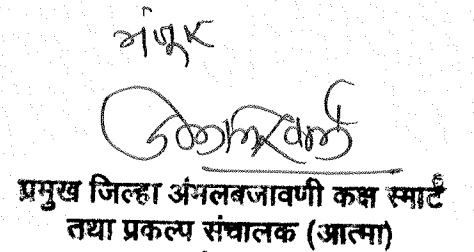 मंजूर
प्रमुख जिल्हा अंमलबजावणी कक्ष स्मार्ट
तथा प्रकल्प संचालक (आत्मा)